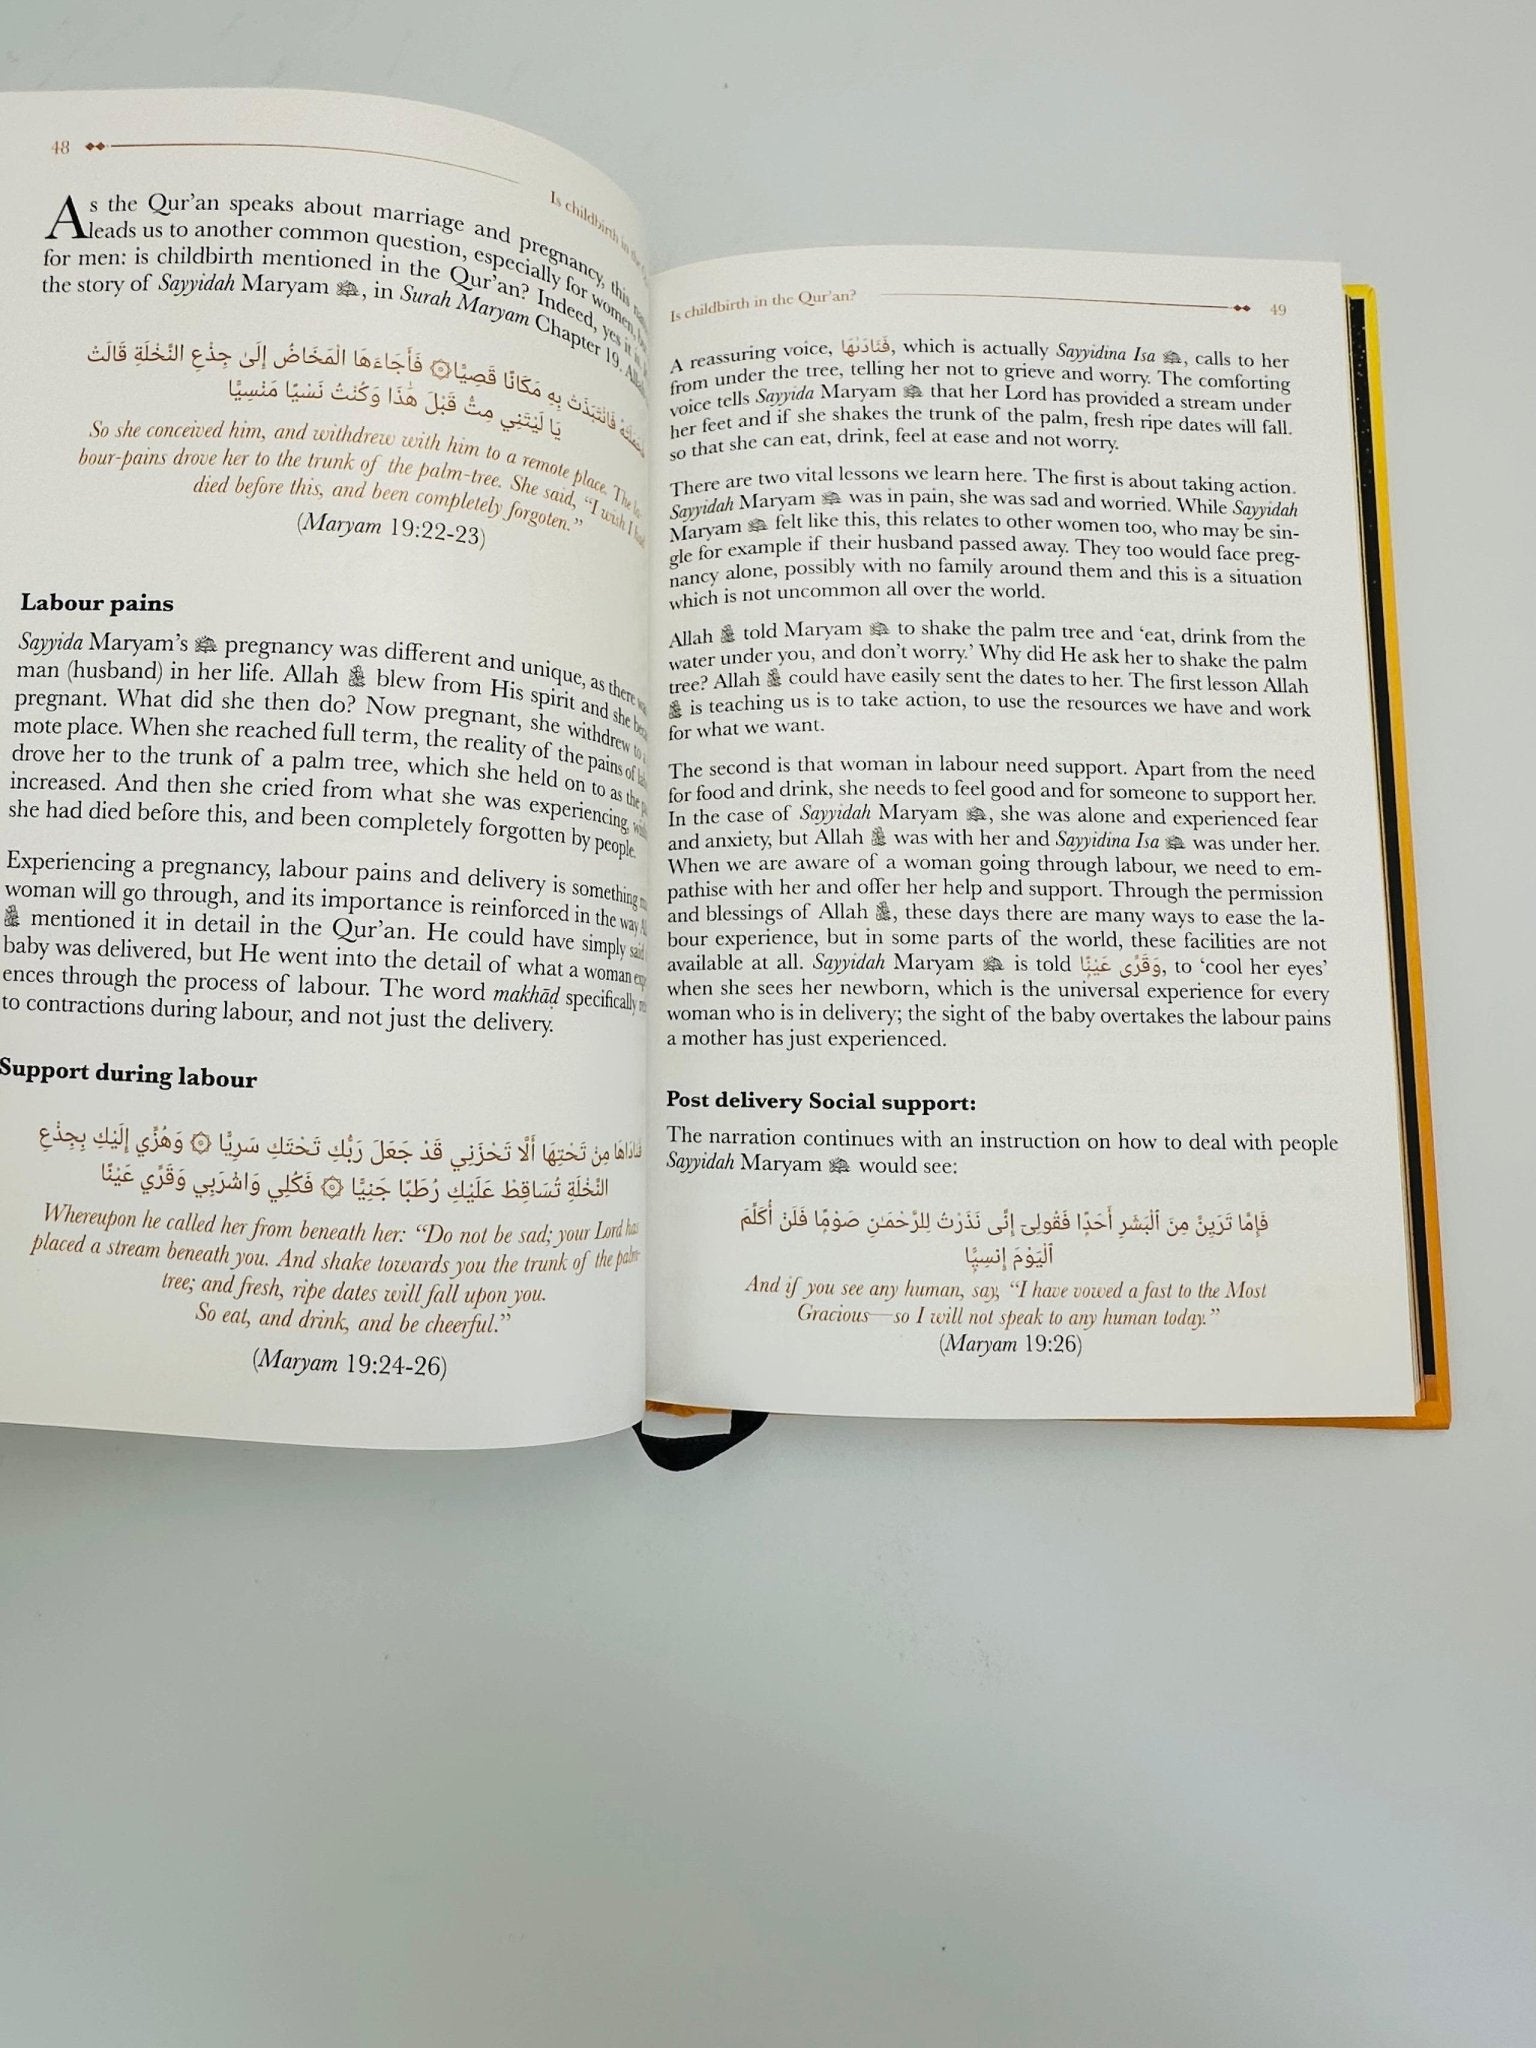 48
Is childbirth in the
As the Qur’an speaks about marriage and pregnancy, this
leads us to another common question, especially for women,
for men: is childbirth mentioned in the Qur’an? Indeed, yes it is
the story of Sayyidah Maryam, in Surah Maryam Chapter 19.
فَانْتَبَذَتْ بِهِ مَكَانًا قَصِيًّا ۞ فَأَجَاءَهَا الْمَخَاضُ إِلَىٰ جِذْعِ النَّخْلَةِ قَالَتْ
يَا لَيْتَنِي مِتُّ قَبْلَ هَٰذَا وَكُنْتُ نَسْيًا مَنْسِيًّا
So she conceived him, and withdrew with him to a remote place. The la-
bour-pains drove her to the trunk of the palm-tree. She said, “I wish I had
died before this, and been completely forgoten.”
(Maryam 19:22-23)
Labour pains
Sayyida Maryam’s pregnancy was different and unique, as there
man (husband) in her life. Allah blew from His spirit and she
pregnant. What did she then do? Now pregnant, she withdrew to
mote place. When she reached full term, the reality of the pains of
drove her to the trunk of a palm tree, which she held on to as the
increased. And then she cried from what she was experiencing,
she had died before this, and been completely forgotten by people.
Experiencing a pregnancy, labour pains and delivery is something
woman will go through, and its importance is reinforced in the way
ﷻ mentioned it in detail in the Qur’an. He could have simply said
baby was delivered, but He went into the detail of what a woman
ences through the process of labour. The word makhāḍ specifically
to contractions during labour, and not just the delivery.
Support during labour
فَنَادَاهَا مِنْ تَحْتِهَا أَلَّا تَحْزَنِي قَدْ جَعَلَ رَبُّكِ تَحْتَكِ سَرِيًّا ۞ وَهُزِّي إِلَيْكِ بِجِذْعِ
النَّخْلَةِ تُسَاقِطْ عَلَيْكِ رُطَبًا جَنِيًّا ۞ فَكُلِي وَاشْرَبِي وَقَرِّي عَيْنًا
Whereupon he called her from beneath her: “Do not be sad; your Lord has
placed a stream beneath you. And shake towards you the trunk of the palm-
tree; and fresh, ripe dates will fall upon you.
So eat, and drink, and be cheerful.”
(Maryam 19:24-26)
Is childbirth in the Qur’an?
49
A reassuring voice, فَنَادَىٰهَا, which is actually Sayyidina Isa, calls to her
from under the tree, telling her not to grieve and worry. The comforting
voice tells Sayyida Maryam that her Lord has provided a stream under
her feet and if she shakes the trunk of the palm, fresh ripe dates will fall.
so that she can eat, drink, feel at ease and not worry.
There are two vital lessons we learn here. The first is about taking action.
Sayyidah Maryam was in pain, she was sad and worried. While Sayyidah
Maryam felt like this, this relates to other women too, who may be sin-
gle for example if their husband passed away. They too would face preg-
nancy alone, possibly with no family around them and this is a situation
which is not uncommon all over the world.
Allah ﷻ told Maryam to shake the palm tree and ‘eat, drink from the
water under you, and don’t worry.’ Why did He ask her to shake the palm
tree? Allah ﷻ could have easily sent the dates to her. The first lesson Allah
ﷻ is teaching us is to take action, to use the resources we have and work
for what we want.
The second is that woman in labour need support. Apart from the need
for food and drink, she needs to feel good and for someone to support her.
In the case of Sayyidah Maryam, she was alone and experienced fear
and anxiety, but Allah ﷻ was with her and Sayyidina Isa was under her.
When we are aware of a woman going through labour, we need to em-
pathise with her and offer her help and support. Through the permission
and blessings of Allah ﷻ, these days there are many ways to ease the la-
bour experience, but in some parts of the world, these facilities are not
available at all. Sayyidah Maryam is told وَقَرِّى عَيْنًا, to ‘cool her eyes’
when she sees her newborn, which is the universal experience for every
woman who is in delivery; the sight of the baby overtakes the labour pains
a mother has just experienced.
Post delivery Social support:
The narration continues with an instruction on how to deal with people
Sayyidah Maryam would see:
فَإِمَّا تَرَيِنَّ مِنَ ٱلْبَشَرِ أَحَدًا فَقُولِىٓ إِنِّى نَذَرْتُ لِلرَّحْمَٰنِ صَوْمًا فَلَنْ أُكَلِّمَ
ٱلْيَوْمَ إِنسِيًّا
And if you see any human, say, “I have vowed a fast to the Most
Gracious—so I will not speak to any human today.”
(Maryam 19:26)